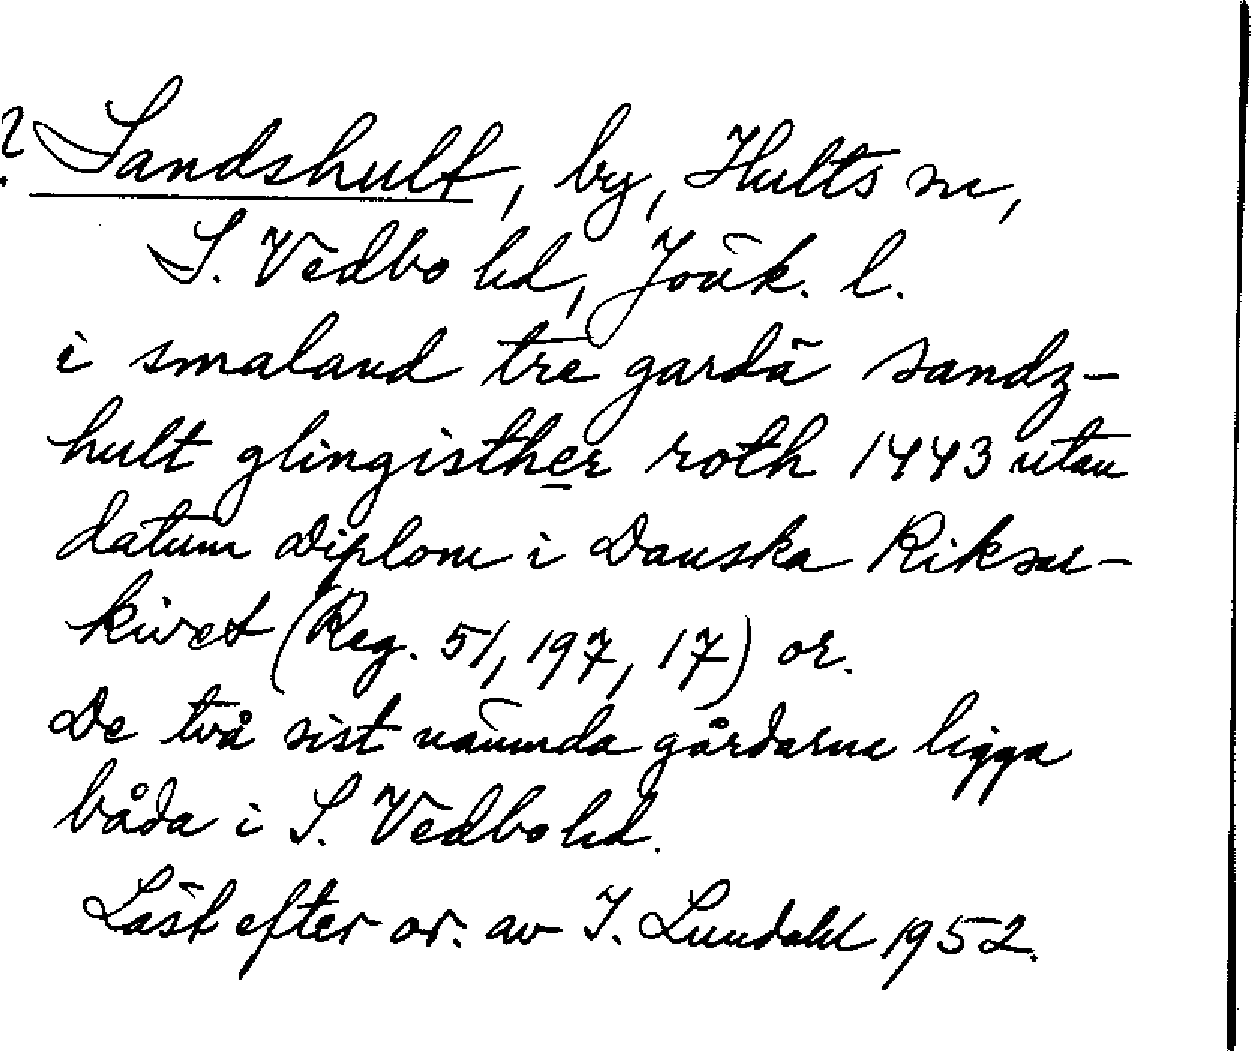 ? Sandshult, by, Hults sn,
S. Vedbo hd, Jönk. l.
i smaland tre gardä sandz-
hult glingisther roth 1443 utan
datum Diplom i Danska Riksar-
kivet (Reg. 51, 197, 17) or.
De två sist nämnda gårdarna ligga
båda i S. Vedbo hd.
Läst efter or. av I. Lundahl 1952.